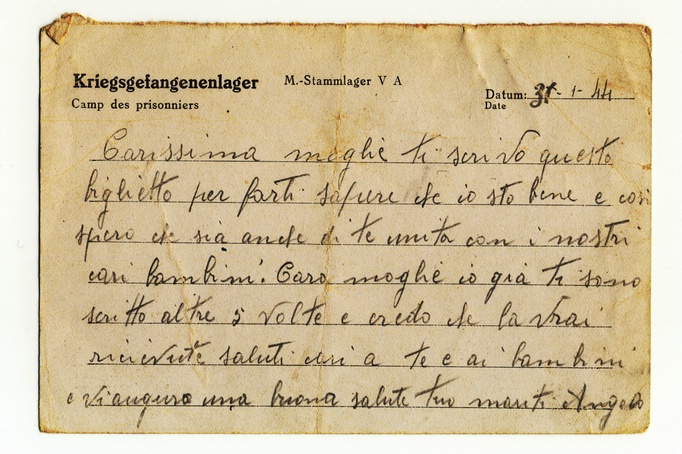 Kriegsgefangenenlager M.-Stammlager V A
Camp des prisonniers
Datum: 31-1-44
Date
Carissima moglie ti scrivo questo
biglietto per farti sapere che io sto bene e così
spero che sia anche di te unita con i nostri
cari bambini. Cara moglie io già ti sono
scritto altre 5 volte e credo che la vrai
ricievute saluti cari a te e ai bambini
e vi auguro una buona salute tuo marit. Angelo